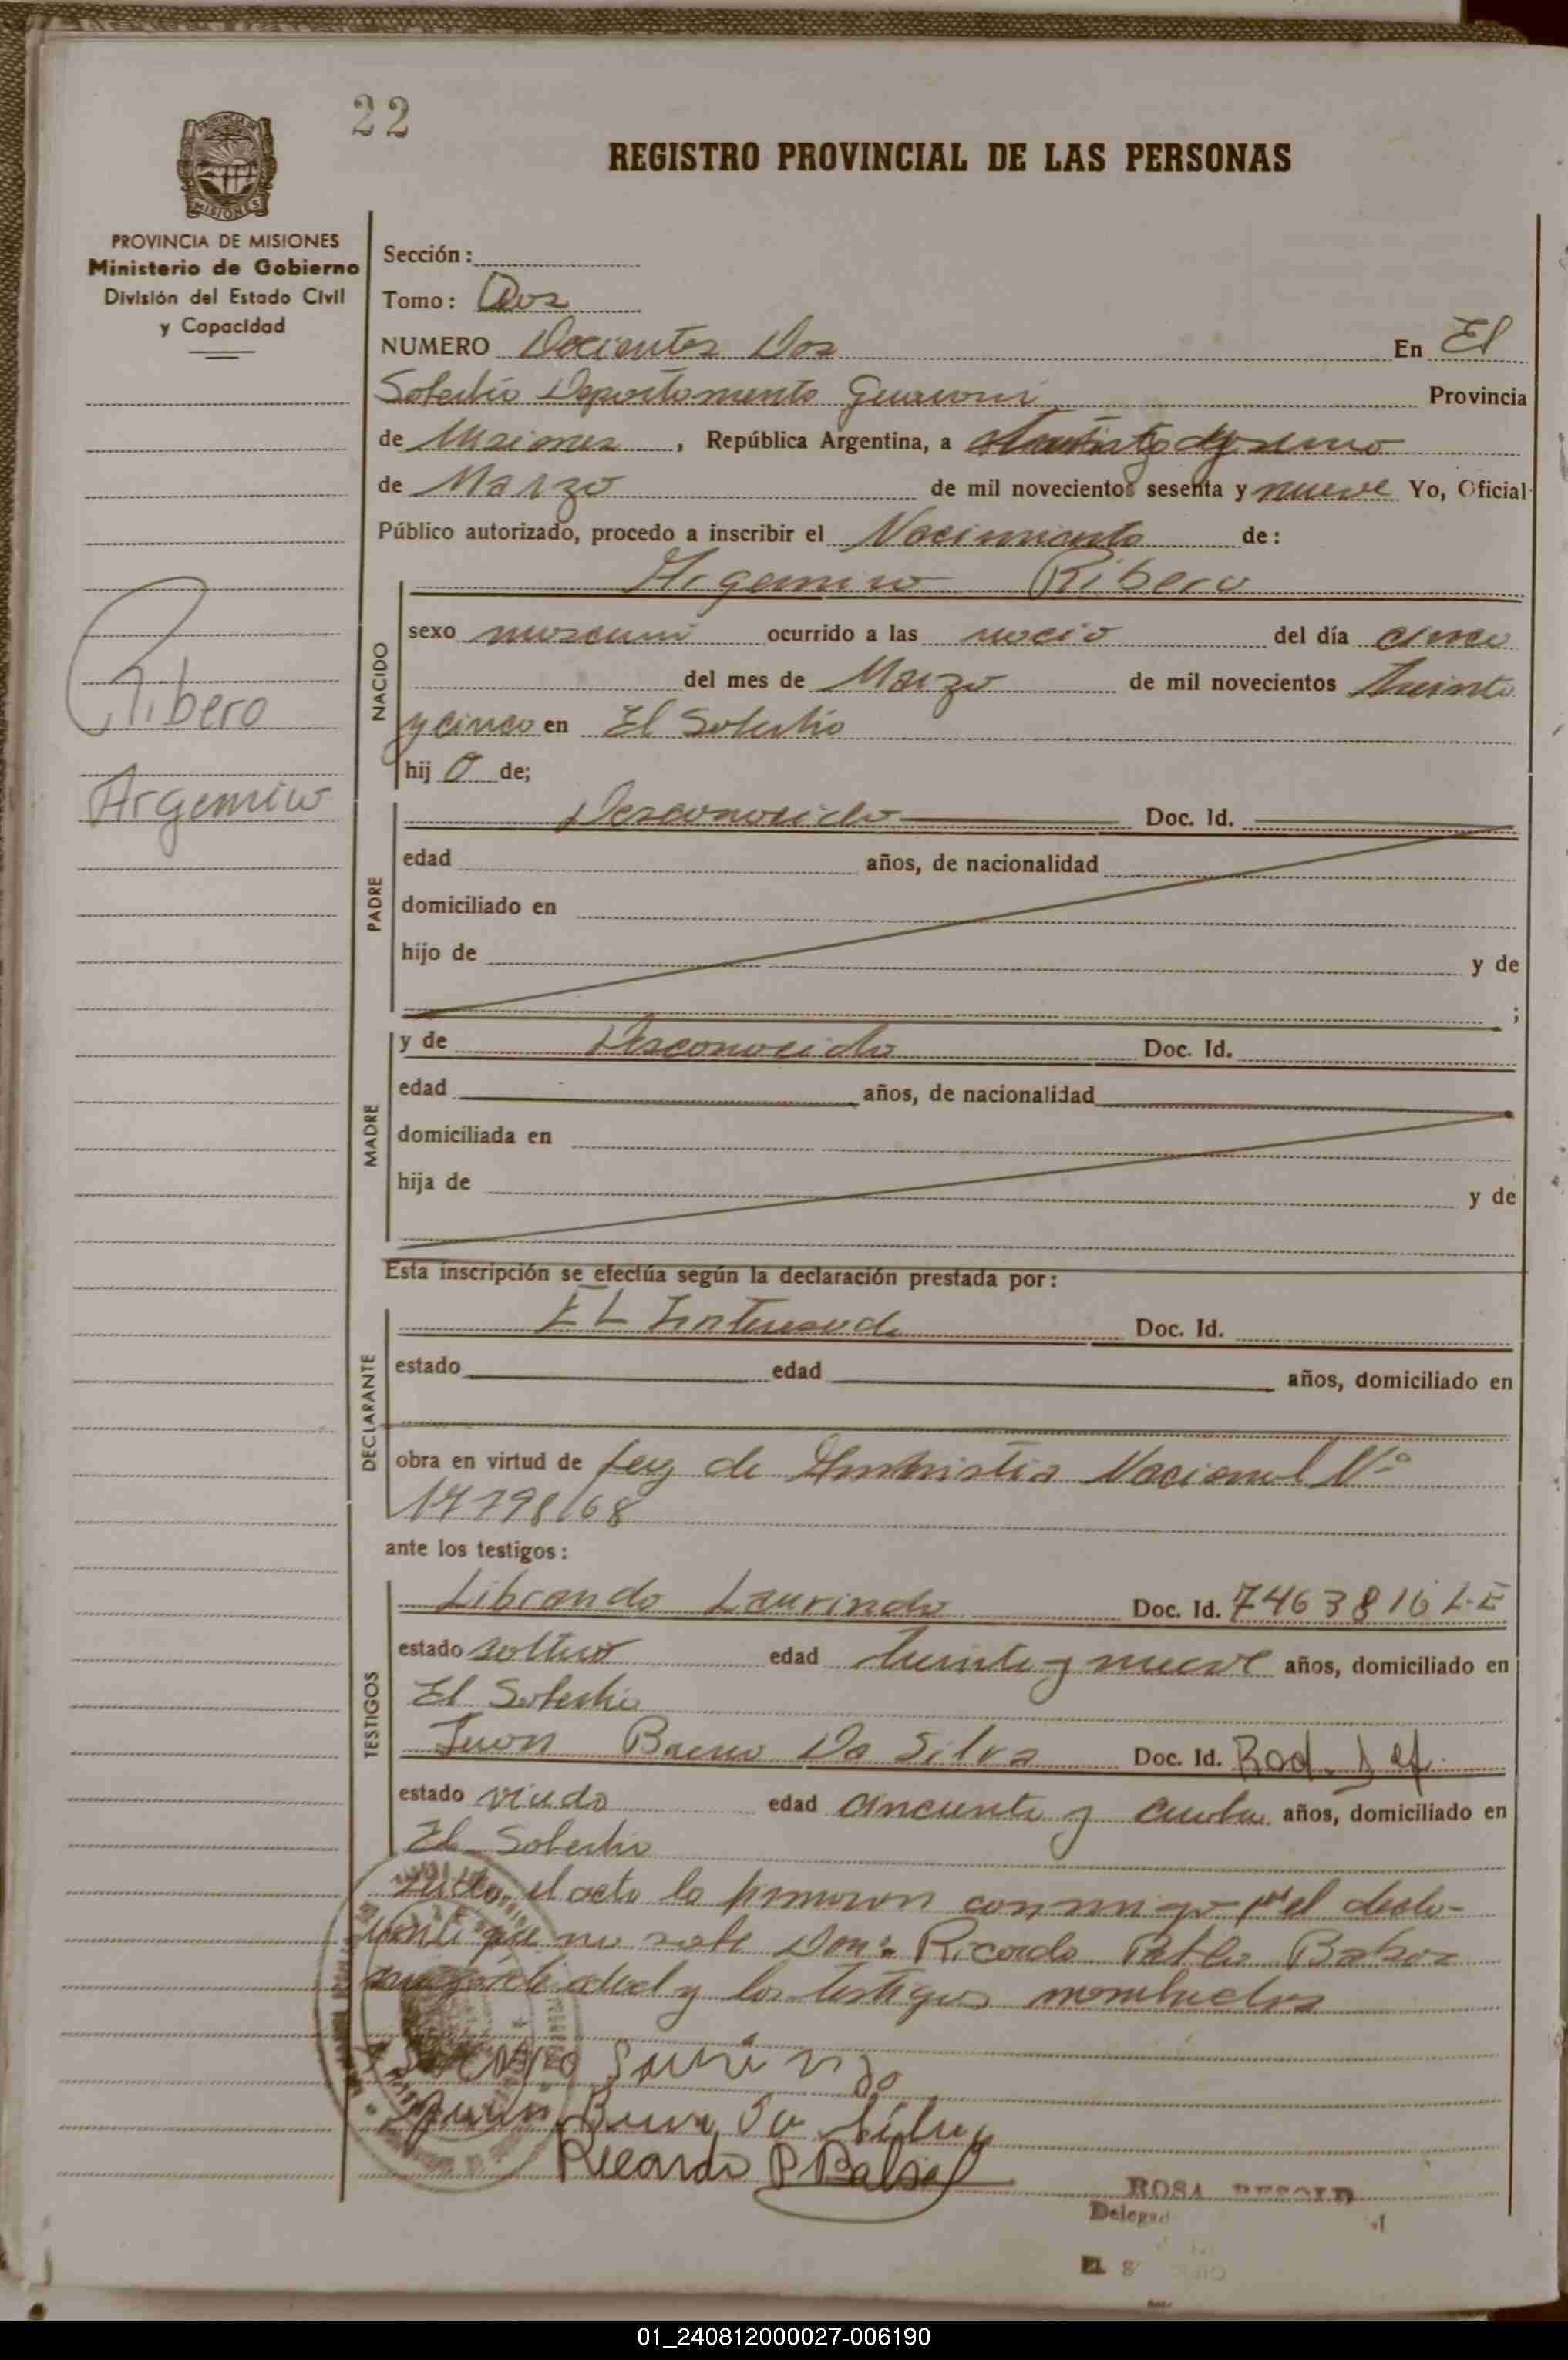 22
REGISTRO PROVINCIAL DE LAS PERSONAS
MISIONES
PROVINCIA DE MISIONES
Ministerio de Gobierno
División del Estado Civil
y Capacidad
Sección:
Tomo: Dos
NUMERO Docientos Dos En El
Soberbio Departamento Guarani Provincia
de Misiones, República Argentina, a
de Marzo de mil novecientos sesenta y nueve Yo, Oficial
Público autorizado, procedo a inscribir el Nacimiento de:
Argemiro Ribero
NACIDO
sexo masculi ocurrido a las nacio del día cinco
del mes de Marzo de mil novecientos treinta
y cinco en El Soberbio
hij o de;
Ribero
Argemiro
PADRE
Desconocido Doc. Id.
edad años, de nacionalidad
domiciliado en
hijo de y de
;
MADRE
y de Desconocida Doc. Id.
edad años, de nacionalidad
domiciliada en
hija de y de
Esta inscripción se efectúa según la declaración prestada por:
DECLARANTE
EL Interesado Doc. Id.
estado edad años, domiciliado en
obra en virtud de Ley de Amnistia Nacional Nº
17798/68
ante los testigos:
TESTIGOS
Librando Laurindo Doc. Id. 7463816 L.E
estado soltero edad treinta y nueve años, domiciliado en
El Soberbio
Juan Da Silva Doc. Id.
estado viudo edad cincuenta y años, domiciliado en
El Soberbio
el acto lo firmaron conmigo por el decla-
rante que no sabe Don: Ricardo Pablo
mayor de edad y los testigos nombrados
Juan Da Silva
Ricardo P
ROSA
Delegad
EL S
01_240812000027-006190